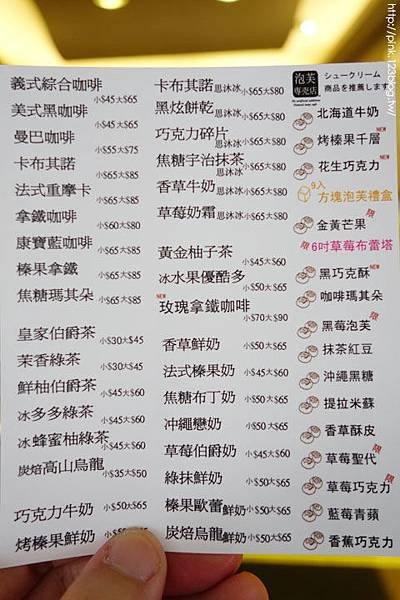 http://pink.123blog.tw/
義式綜合咖啡 小$45大$65
美式黑咖啡 小$45大$65
曼巴咖啡 小$55大$75
卡布其諾 小$65大$85
法式重摩卡 小$65大$85
拿鐵咖啡 小$60大$80
康寶藍咖啡 小$65大$85
榛果拿鐵 小$65大$85
焦糖瑪其朵 小$65大$85
皇家伯爵茶 小$30大$45
茉香綠茶 小$30大$45
鮮柚伯爵茶 小$45大$60
冰多多綠茶 小$45大$60
冰蜂蜜柚綠茶 小$45大$60
炭焙高山烏龍 小$35大$50
巧克力牛奶 小$50大$65
烤榛果鮮奶
卡布其諾 思沐冰 小$65大$80
黑炫餅乾 思沐冰 小$65大$80
巧克力碎片 思沐冰 小$65大$80
焦糖宇治抹茶 思沐冰 小$65大$80
香草牛奶 思沐冰 小$65大$80
草莓奶霜 思沐冰 小$65大$80
黃金柚子茶 小$45大$60
冰水果優酷多 小$50大$65
NEW 玫瑰拿鐵咖啡 小$70大$90
香草鮮奶 小$50大$65
法式榛果奶 小$45大$60
焦糖布丁奶 小$50大$65
沖繩戀奶 小$50大$65
草莓伯爵奶 小$45大$60
綠抹鮮奶 小$50大$65
榛果歐蕾鮮奶 小$50大$65
炭焙烏龍鮮奶 小$50大$65
泡芙専売店
シュークリーム
商品を推薦します
北海道牛奶
烤榛果千層 NEW
花生巧克力 NEW
9入
方塊泡芙禮盒
金黃芒果 限
限 6吋草莓布蕾塔
黑巧克酥 NEW
咖啡瑪其朵
黑莓泡芙 限
抹茶紅豆
沖繩黑糖
提拉米蘇
香草酥皮
草莓聖代 限
草莓巧克力 限
藍莓青蘋
香蕉巧克力